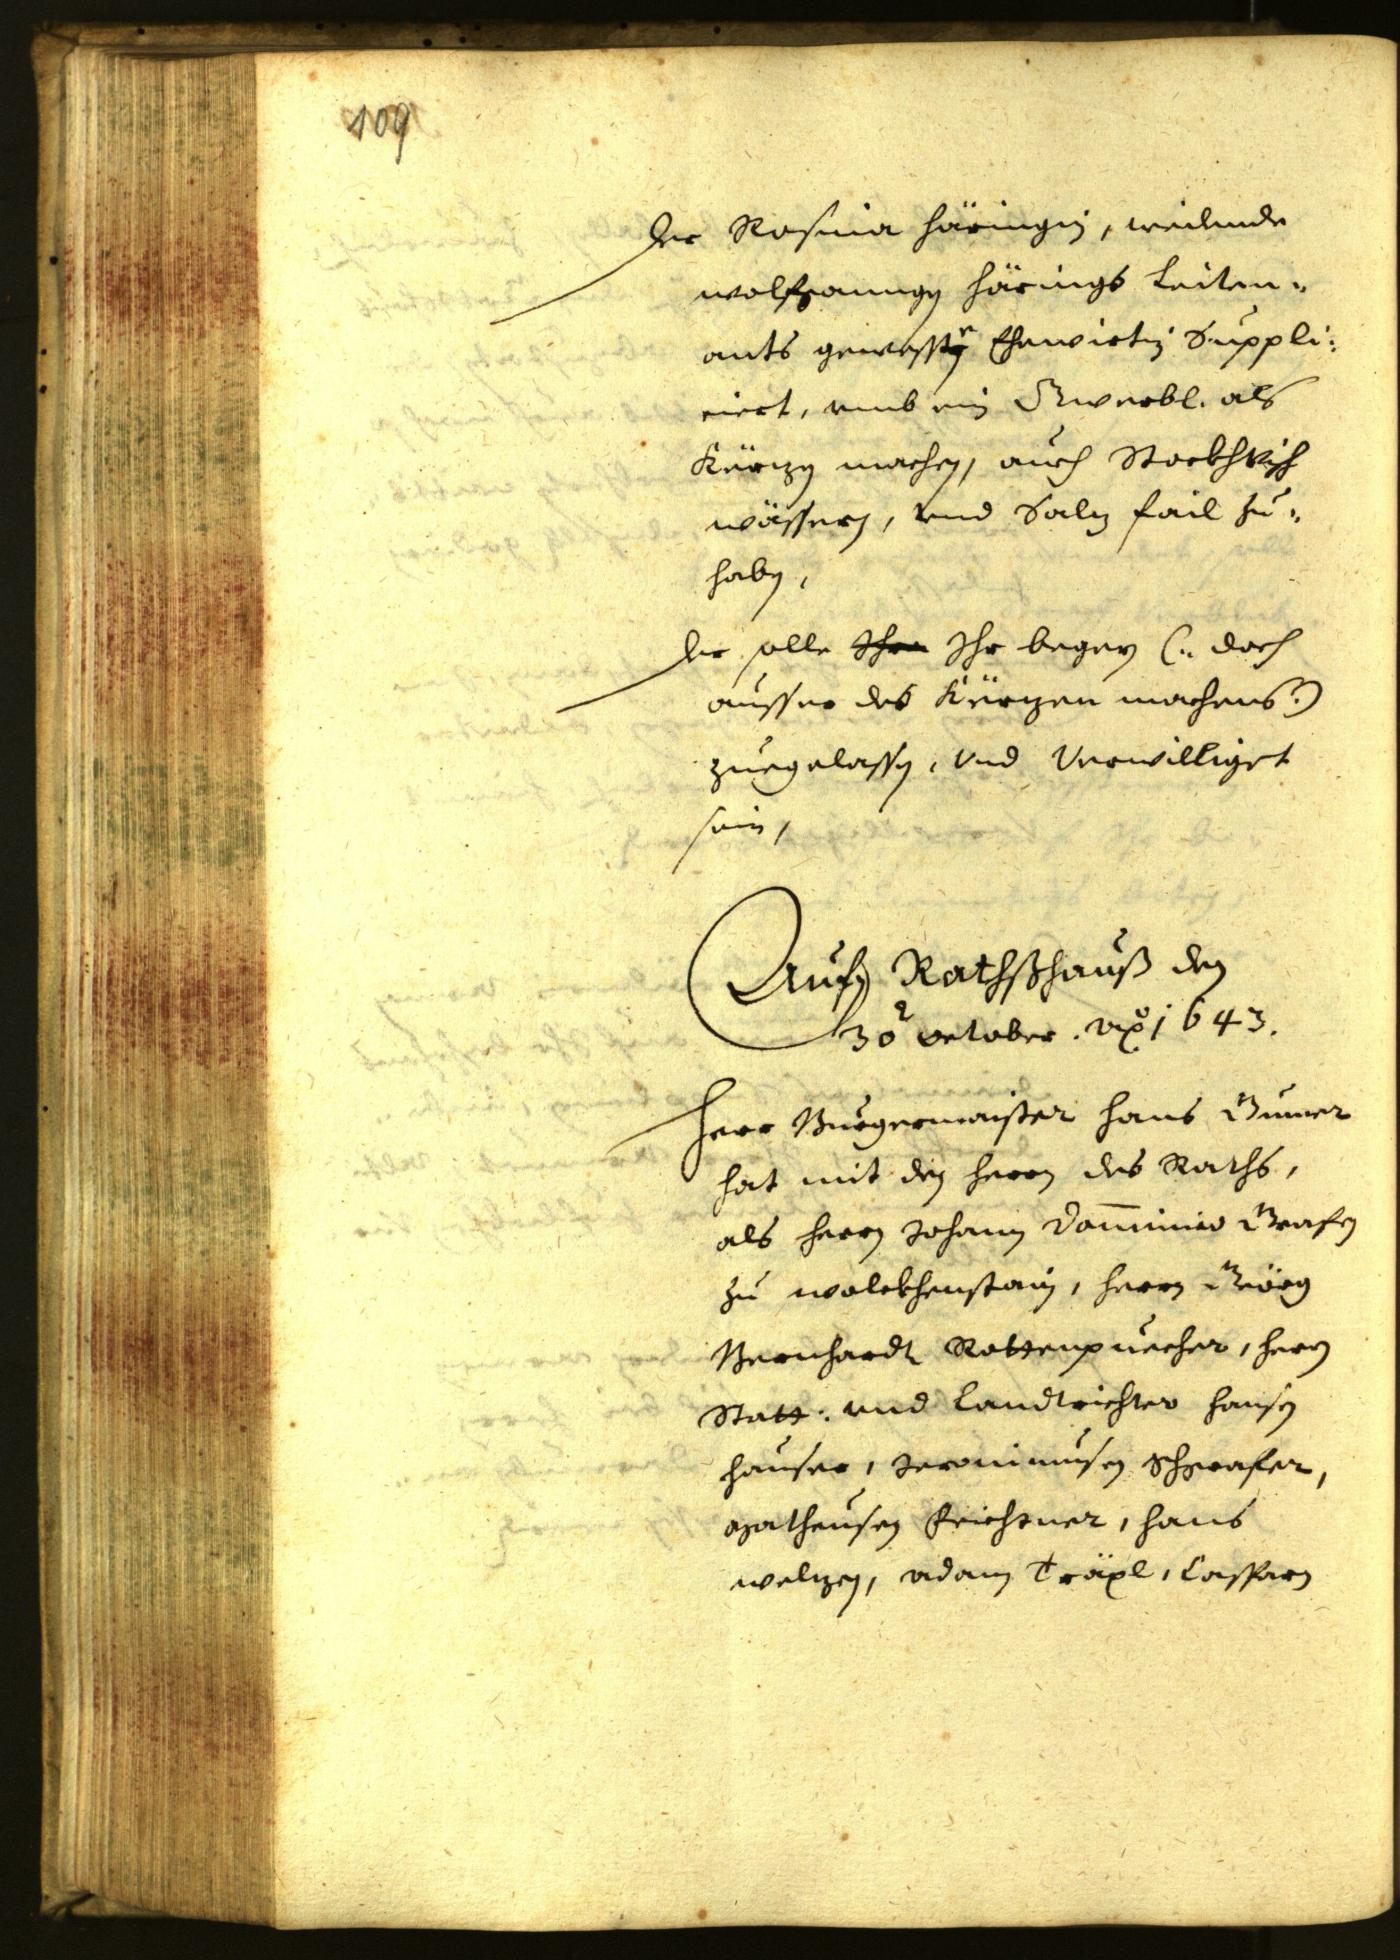 109
Der Rosina Häringin, weilende
wolfganngen Härings Leiten„
ants gewesten Ehewirtin Suppli:
ciert, umb ein Gwerbl. als
Kürzen machen, auch Stockhvisch
wässern, und Salz fail zu„
haben,
Der solle Ihr begern (: doch
ausser des Kürzen machens :)
zuegelassen, und Verwilliget
sein,
Aufm Rathßhauß den
30 october. ao 1643.
Herr Burgermaister Hans Gumer
hat mit den herrn des Raths,
als herrn Johann Dominico Grafen
zu wolckhenstain, herrn Geörg
Bernhardt Rottenpuecher, herrn
Statt: und Landtrichter Hansen
Hauser, Jeronimusen Schgrafer,
Matheusen Feichtner, Hans
welzen, Adam Träxl, Casparn